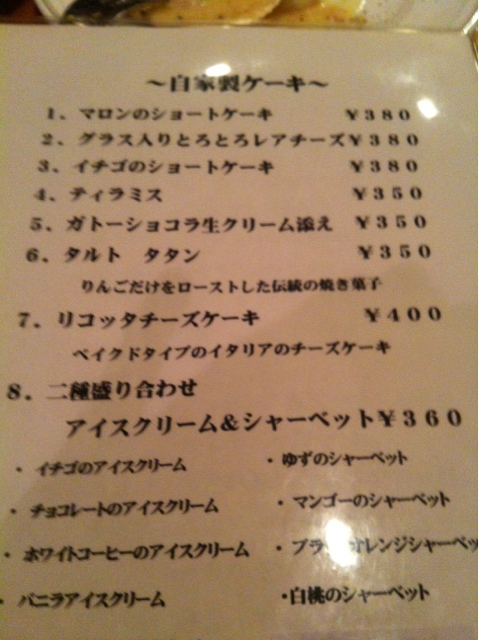 ～自家製ケーキ～
1、マロンのショートケーキ ￥380
2、グラス入りとろとろレアチーズ￥380
3、イチゴのショートケーキ ￥380
4、ティラミス ￥350
5、ガトーショコラ生クリーム添え ￥350
6、タルト タタン ￥350
りんごだけをローストした伝統の焼き菓子
7、リコッタチーズケーキ ￥400
ベイクドタイプのイタリアのチーズケーキ
8．二種盛り合わせ
アイスクリーム&シャーベット￥360
・イチゴのアイスクリーム ・ゆずのシャーベット
・チョコレートのアイスクリーム ・マンゴーのシャーベット
・ホワイトコーヒーのアイスクリーム ・ オレンジシャーベッ
・バニラアイスクリーム ・白桃のシャーベット